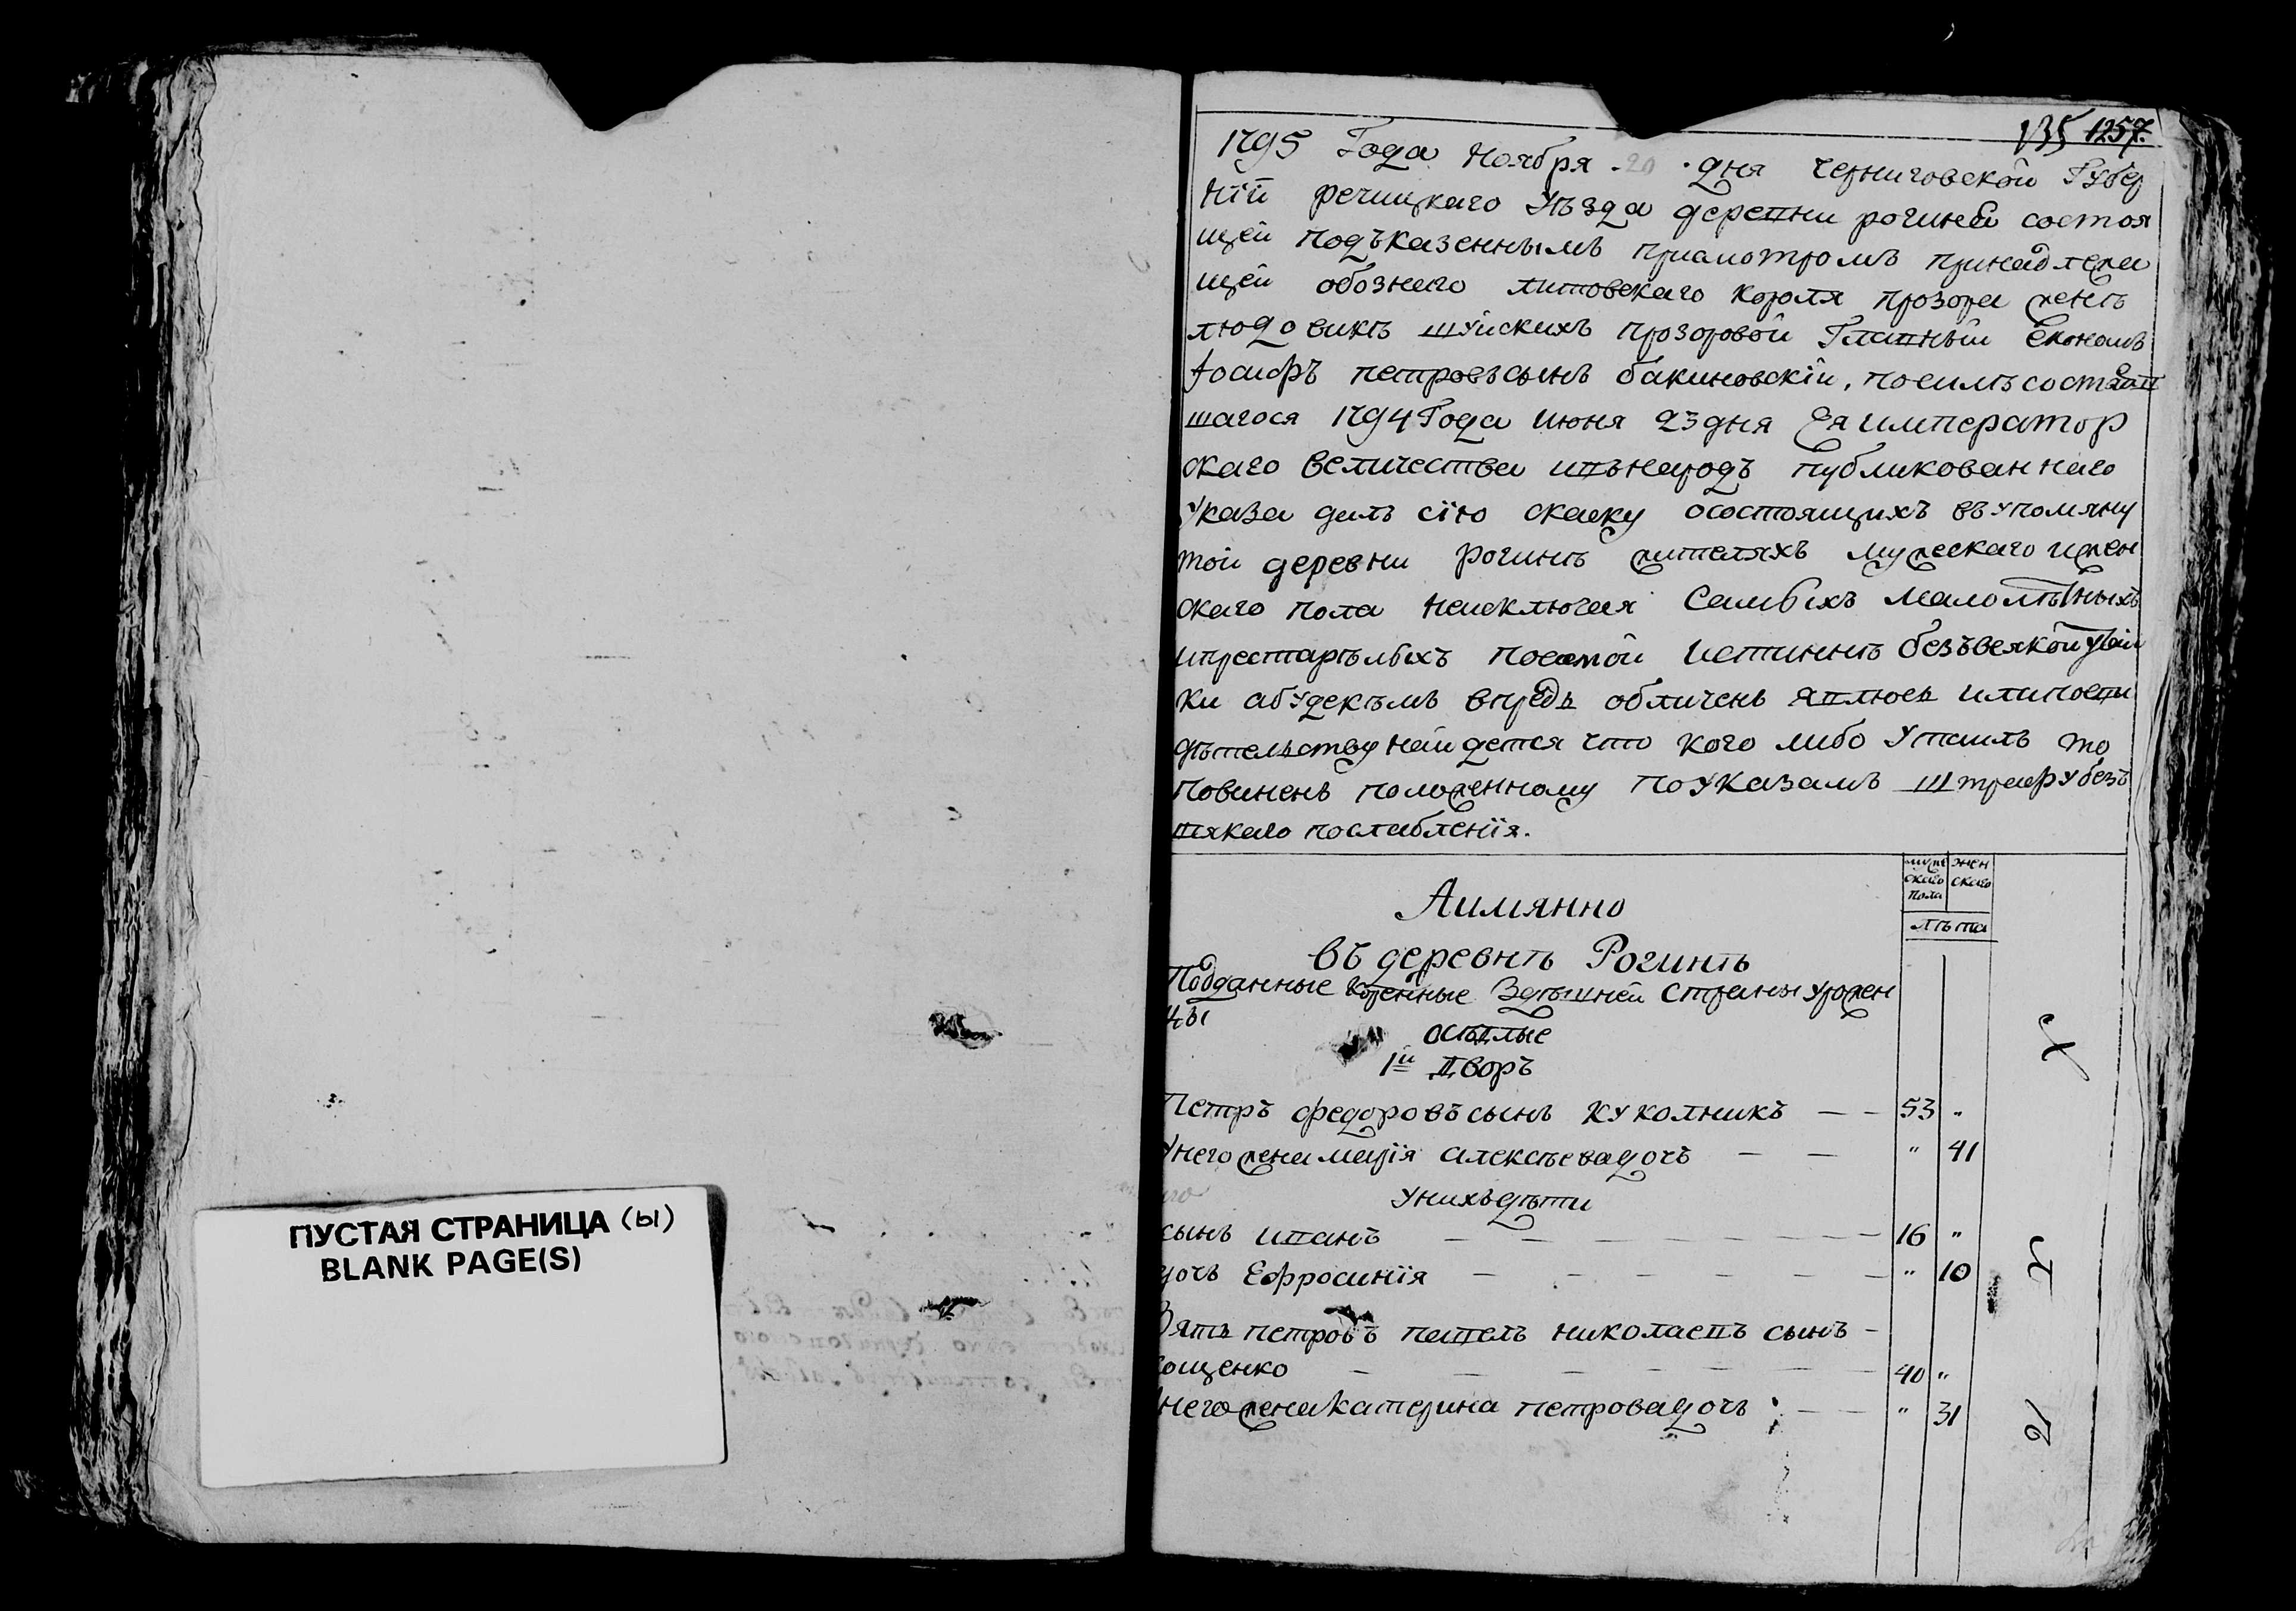 135 1257.
1795 Года Ноября 20 дня Черниговской Губер
нїй речицкаго Уѣзда деревни рогиней состоя
щей подъказеннымъ присмотромъ принадлежа
щей обознаго литовскаго короля прозора женѣ
людовикѣ шуйскихъ прозоровой Главный Економъ
Iосифъ петровъсынъ бакиновскїй, посилѣсостояв
шагося 1794 Года Июня 23 дня Ея император
скаго величества ивънародъ публикованнаго
Указа далъ сїю скаску осостоящихъ въупомяну
той деревни Рогинѣ жителяхъ мужескаго ижен
скаго пола неисключая самыхъ малолѣтныхъ
ипрестарѣлыхъ посамой Истиннѣ безъвсякойутай
ки абудекѣмъ впредь обличенъ явлюсь илипосви
дѣтельству найдется что кого либо Утаилъ то
повиненъ положенному поуказамъ штрафу безъ
всякаго послабленїя.
муже жен
скаго скаго
пола
лѣта
Аимянно
въ деревнѣ Рогинѣ
Подданные коренные Здѣшней Страны урожен
цы
осѣдлые
1й Дворъ
Петръ федоровъсынъ куколникъ — — 53 "
Унего жена марїя алексѣевадочь — — " 41
Унихъдѣти
сынъ иванъ — 16 "
дочь Ефросинїя — " 10
Зять петровъ павелъ николаевъ сынъ —
ощенко — 40 "
Унего жена катерина петровадочь — " 31
ПУСТАЯ СТРАНИЦА (Ы)
BLANK PAGE(S)